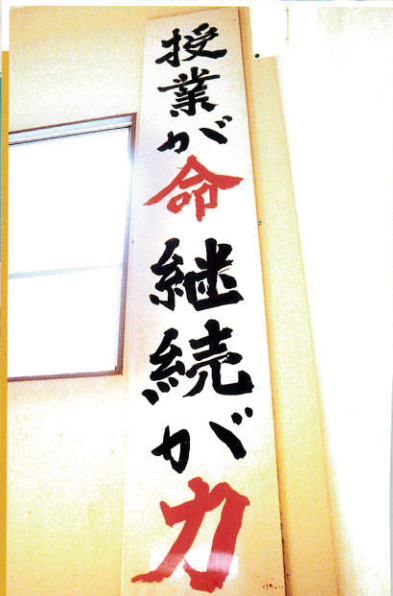 授業が命 継続が力